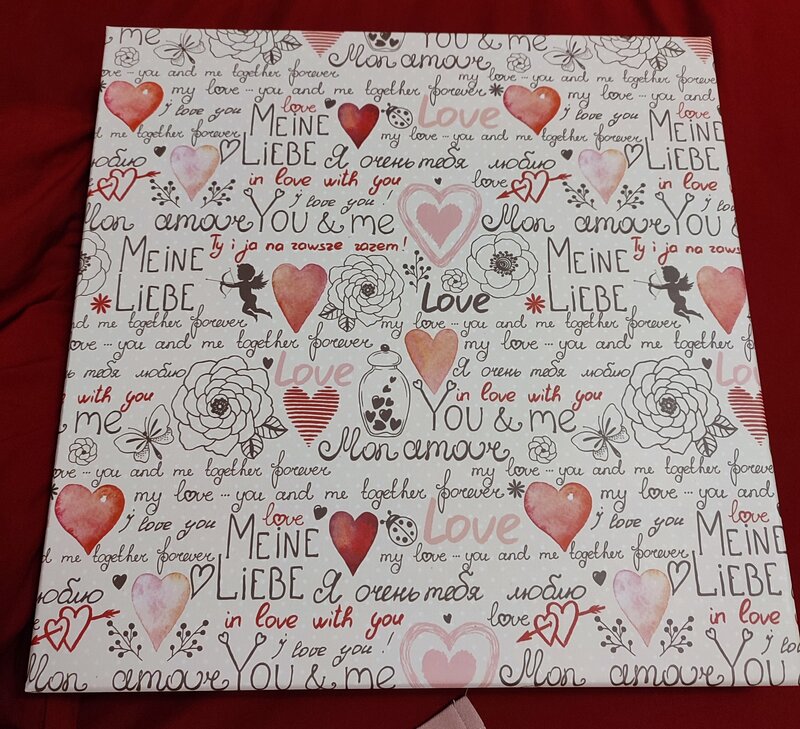 me YOU & me
Mon amour
love ... you and me together forever my love ... you and me
my love ... you and me together forever my love ... you and
I love you love Love I love you love
d me together forever MEINE my love ... you and me together forever MEINE
люблю LIEBE Я очень тебя люблю LIEBE
in love with you love in love
I love you! I love you!
Mon amour YOU & me Mon amour YOU
MEINE Ty i ja na zawsze razem! MEINE Ty i ja na zaws
LIEBE Love LIEBE
d me together forever my love ... you and me together forever
love ... you and me together forever my love ... you and me together forever
очень тебя люблю Love Я очень тебя люблю Love
in love with you in love with you
& me YOU & me
Mon amour
love ... you and me together forever my love ... you and me
my love ... you and me together forever my love ... you and
I love you love Love I love you love
d me together forever MEINE my love ... you and me together forever MEINE
люблю LIEBE Я очень тебя люблю LIEBE
in love with you love in love
I love you! I love you!
Mon amour YOU & me Mon amour YOU